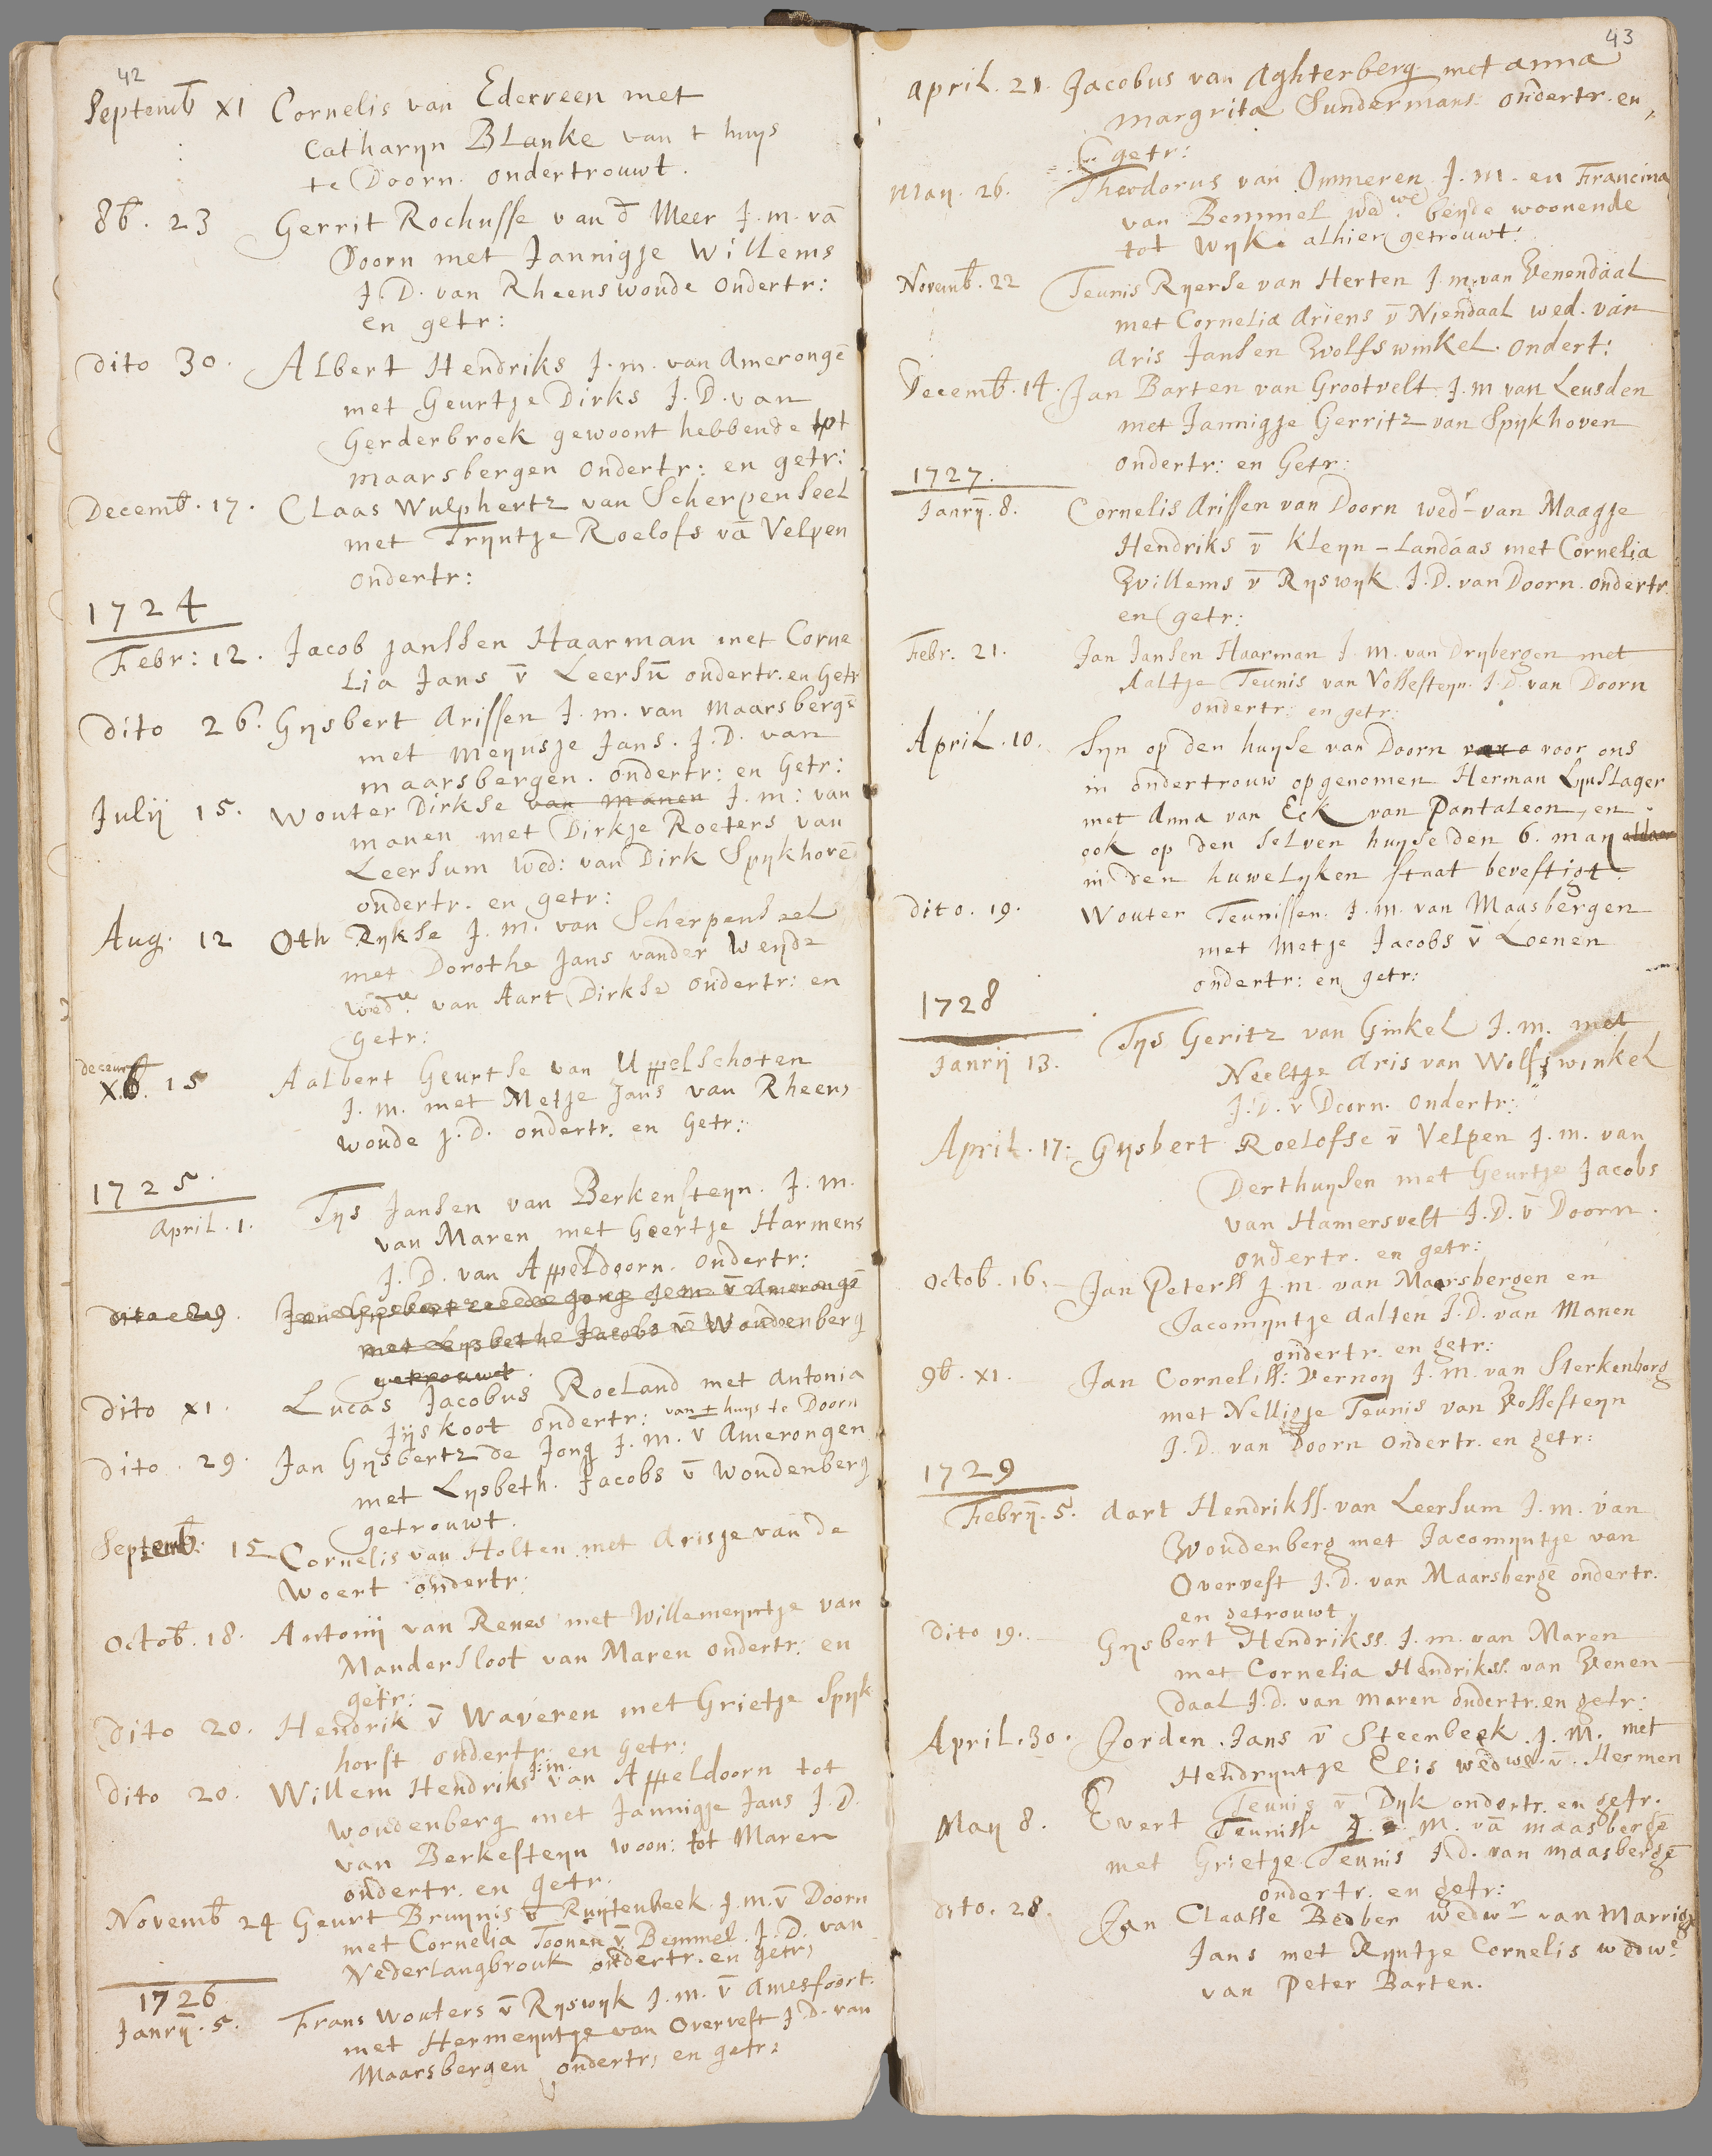 42
Septemb XI Cornelis van Ederveen met
Catharyn Blanke van t huys
te Doorn. ondertrouwt.
8b. 23 Gerrit Rochusse van d Meer J.m. vā
Doorn met Jannigje Willems
J.D. van Rheenswoude ondertr:
en getr:
dito 30. Albert Hendriks J.m. van Amerongē
met Geurtje Dirks J.D. van
Gerderbroek gewoont hebbende tot
maarsbergen ondertr: en getr:
Decemb. 17. Claas Wulphertz van Scherpenseel
met Tryntje Roelofs vā Velpen
ondertr:
1724
Febr: 12. Jacob janssen Haarman met Corne
lia Jans v̄ Leersū ondertr. en Getr
dito 26. Gysbert Arissen J.m. van Maarsbergē
met Meynsje Jans. J.D. van
maarsbergen. ondertr: en Getr:
Julij 15. Wouter Dirkse van Manen J.m: van
manen met Dirkje Roeters van
Leersum Wed: van Dirk Spykhovē
ondertr. en getr:
Aug. 12 Oth Rykse J.m. van Scherpenseel
met Dorothe Jans vander Weyde
wed.we van Aart Dirkse ondertr: en
Getr:
decemb
Xb. 15 Aalbert Geurtse van Uppelschoten
J.m. met Metje Jans van Rheens
woude J.D. ondertr. en Getr:
1725.
April. 1. Tys Jansen van Berkensteyn. J.m.
van Maren met Geertje Harmens
J.D. van Appeldoorn. ondertr:
dito 29. Jan Gysbertz de Jong J.m. v̄ Amerongē
met Lysbeth Jacobs v̄ Woudenberg
getrouwt
dito XI. Lucas Jacobus Roeland met Antonia
Jyskoot ondertr: van t huys te Doorn
dito. 29. Jan Gysbertz de Jong J.m. v̄ Amerongen
met Lysbeth. Jacobs v̄ Woudenberg
getrouwt.
Septemb: 15 Cornelis van Holten met Arisje van de
Woert ondertr:
Octob. 18. Antonij van Renes met Willemeyntje van
Mandersloot van Maren ondertr: en
getr:
Dito 20. Hendrik v̄ Waveren met Grietje Spyk
horst ondertr: en Getr:
dito 20. Willem Hendriks J:m. van Appeldoorn tot
Woudenberg met Jannigje Jans J.D.
van Berkesteyn woon: tot Maren
ondertr. en getr.
Novemb 24 Geurt Bruynis v̄ Ruytenbeek. J.m. v̄ Doorn
met Cornelia Toonen v̄ Bemmel. J.D. van
Nederlangbrouk ondertr. en getr:
1726
Janrij. 5. Frans Wouters v̄ Ryswyk J.m. v̄ Amesfoort.
met Hermeyntje van Overvest J.D. van
Maarsbergen ondertr: en getr:
43
April. 21. Jacobus van Aghterberg met Anna
Margrita Sundermans ondertr. en
getr:
May. 26. Theodorus van Ommeren J.m. en Francina
van Bemmel wed.we beyde woonende
tot Wyk. alhier getrouwt:
Novemb. 22 Teunis Ryerse van Herten J.m. van Venendaal
met Cornelia Ariens v̄ Niendaal wed. van
Aris Jansen Wolfswinkel. ondert:
Decemb. 14. Jan Barten van Grootvelt J.m van Leusden
met Jannigje Gerritz van Spykhoven
ondertr: en Getr:
1727.
Janrij. 8. Cornelis Arissen van Doorn wedr van Maagje
Hendriks v̄ Kleyn-Landaas met Cornelia
Willems v̄ Ryswyk J.D. van Doorn. ondertr.
en getr:
Febr. 21. Jan Jansen Haarman J.m. van Drybergen met
Aaltje Teunis van Vossesteyn. J.D. van Doorn
ondertr: en getr:
April. 10. Syn op den huyse van Doorn voor ons
in ondertrouw opgenomen Herman Lynslager
met Anna van Eck van Pantaleon, en
ook op den selven huyse den 6. may aldaar
in den huwelyken staat bevestigt.
dito. 19. Wouter Teunissen. J.m. van Maasbergen
met Metje Jacobs v̄ Loenen
ondertr: en getr:
1728
Janrij 13. Tys Geritz van Ginkel J.m. met
Neeltje Aris van Wolfswinkel
J.D. v Doorn. ondertr:
April. 17: Gysbert Roelofse v̄ Velpen J.m. van
Derthuysen met Geurtje Jacobs
van Hamersvelt J.D. v̄ Doorn.
ondertr. en getr:
Octob. 16. Jan Peterss J.m. van Maarsbergen en
Jacomyntje Aalten J.D. van Manen
ondertr. en getr:
9b. XI. Jan Corneliss: Vernoy J.m. van Sterkenborg
met Nelligje Teunis van Vossesteyn
J.D. van Doorn ondertr. en getr:
1729
Febrij. 5. Aart Hendrikss. van Leersum J.m. van
Woudenberg met Jacomyntje van
Overvest J.D. van Maarsbergē ondertr.
en getrouwt
Dito 19. Gysbert Hendrikss. J.m. van Maren
met Cornelia Hendrikss. van Venen-
daal J.d. van maren ondertr. en getr:
April. 30. Jorden. Jans v̄ Steenbeek J.M. met
Hendryntje Elis wedwe. v̄. Hermen
Teunis v̄ Dyk ondertr. en getr.
May 8. Evert Teunisse J.M. vā maasbergē
met Grietje Teunis J.d. van maasbergē
ondertr. en getr:
dito. 28. Jan Claasse Bedber wedwr van Marrigje
Jans met Ryntje Cornelis wedwe
van Peter Barten.